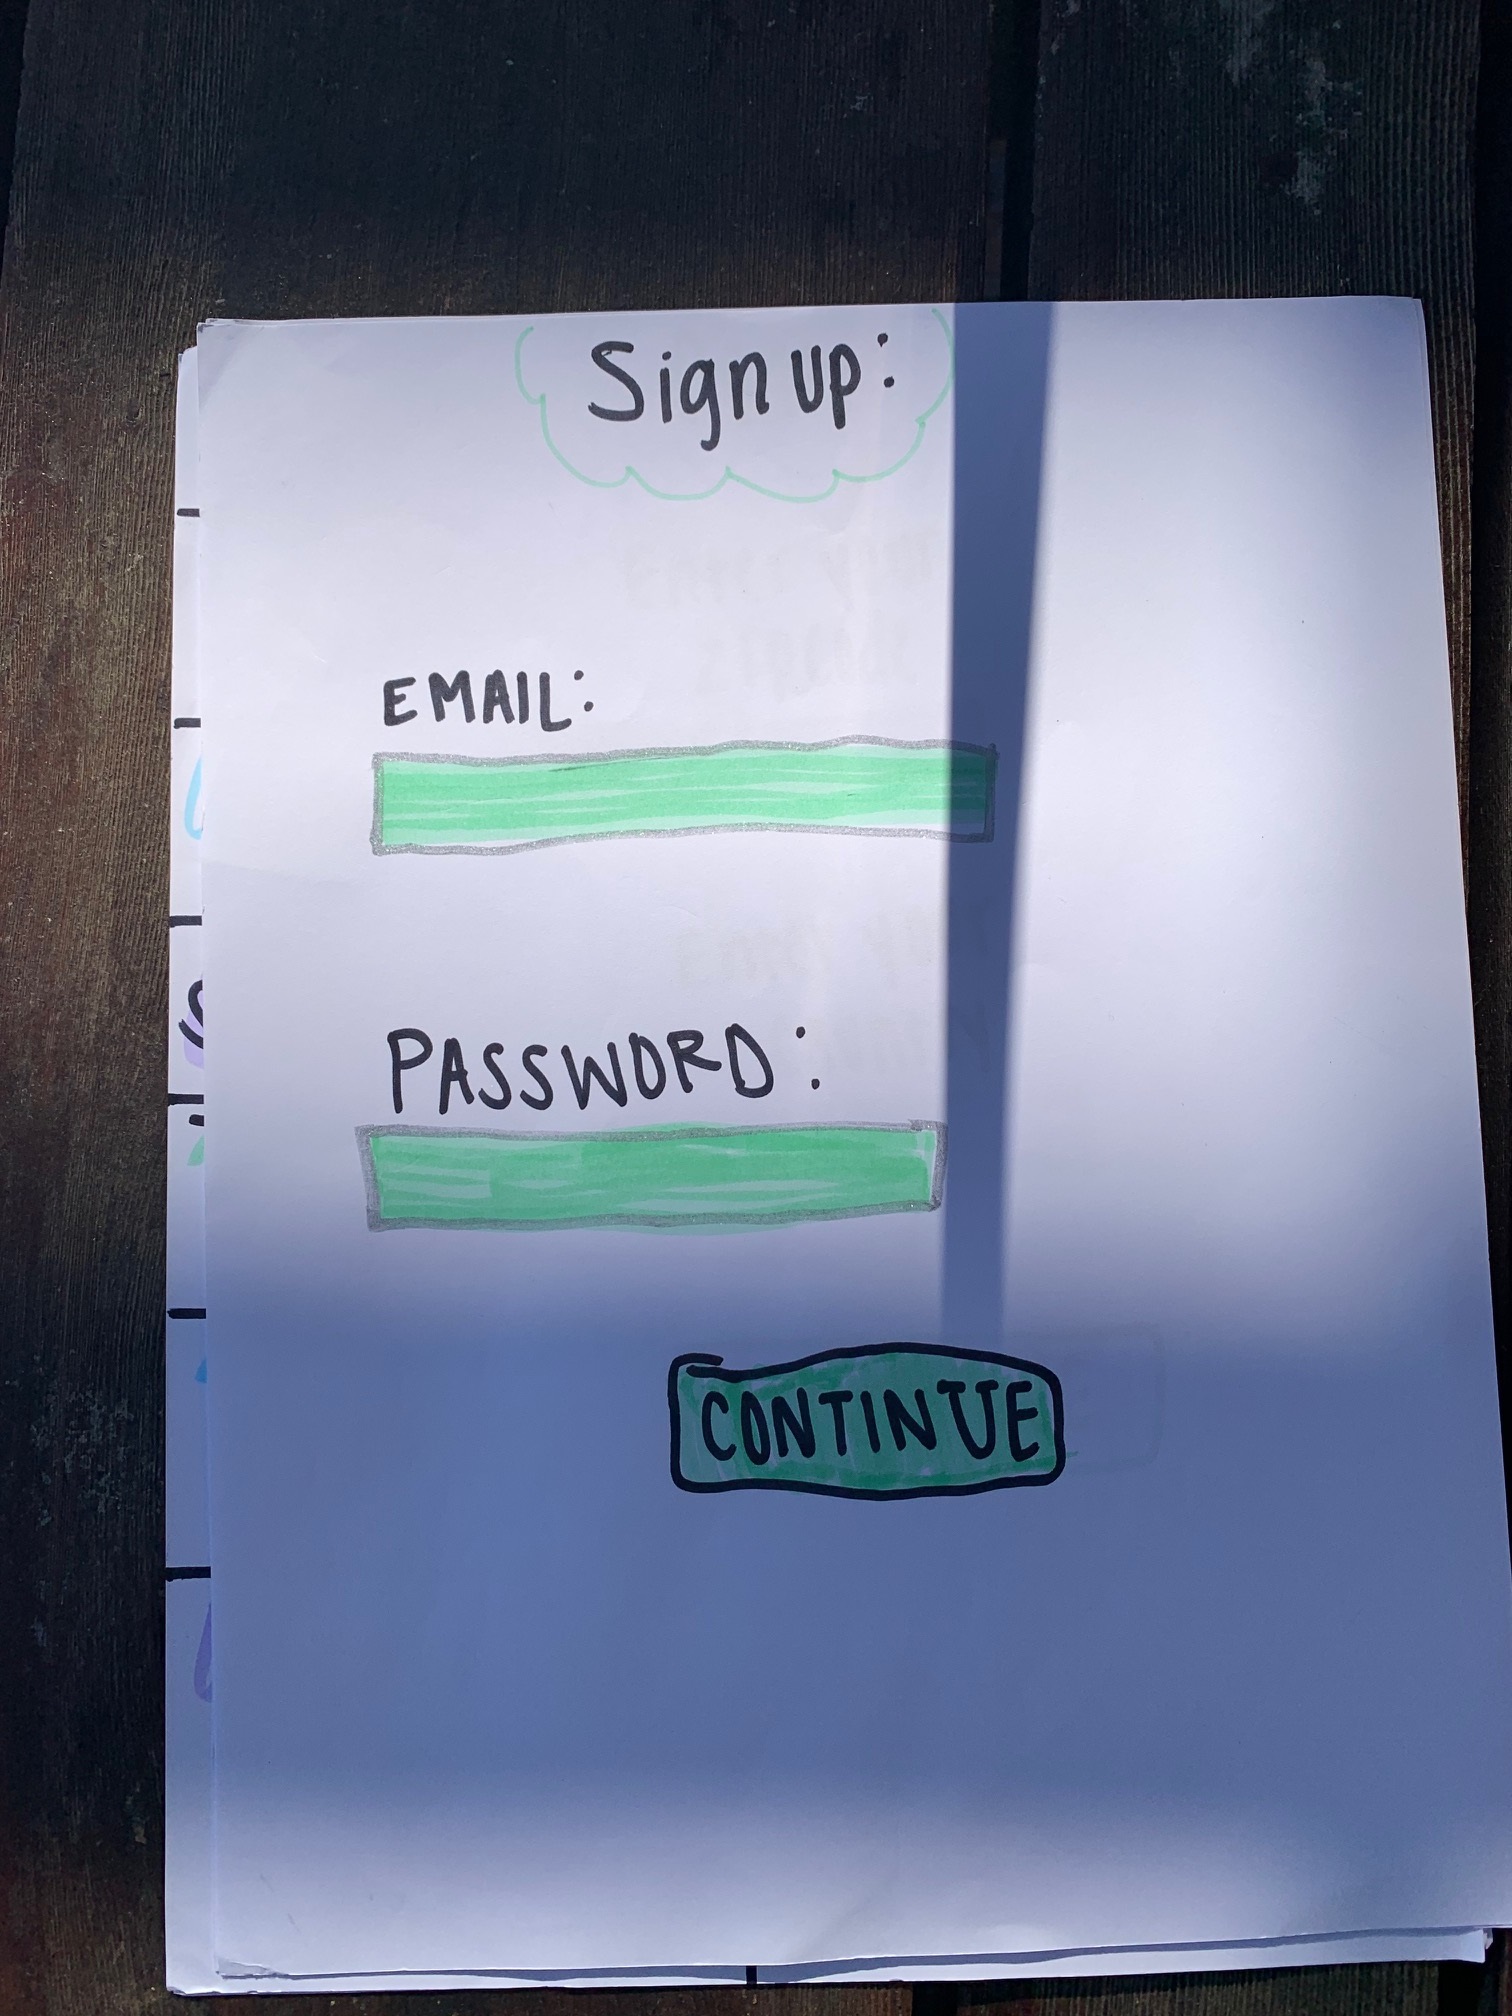 Sign up:
EMAIL:
PASSWORD:
CONTINUE